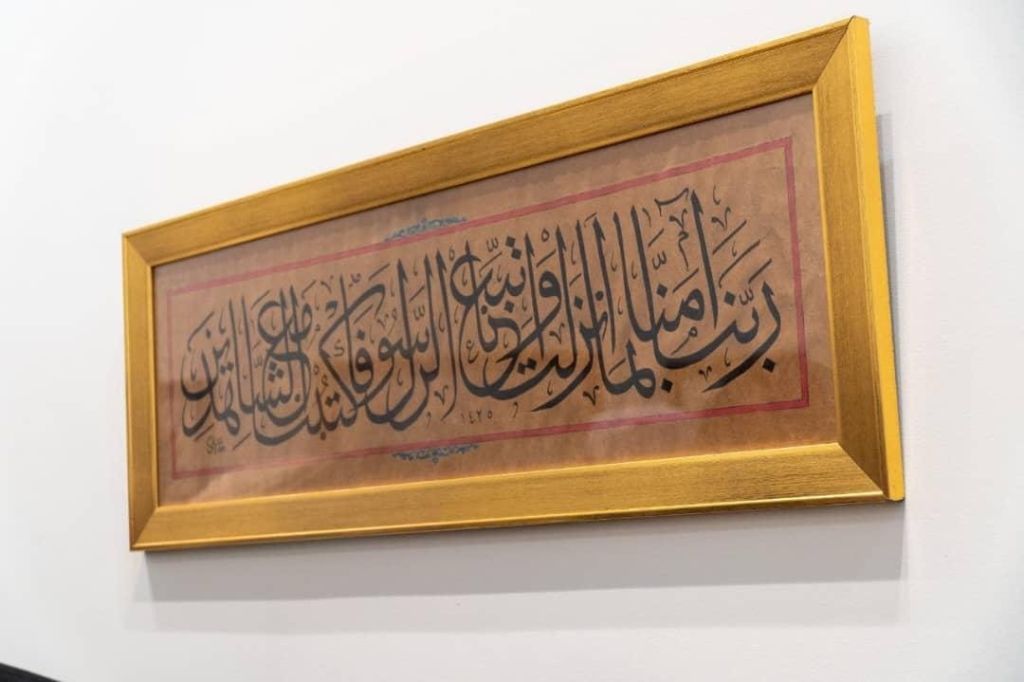 ربنا آمنا بما انزلت واتبعنا الرسول فاكتبنا مع الشاهدين
١٤٢٥